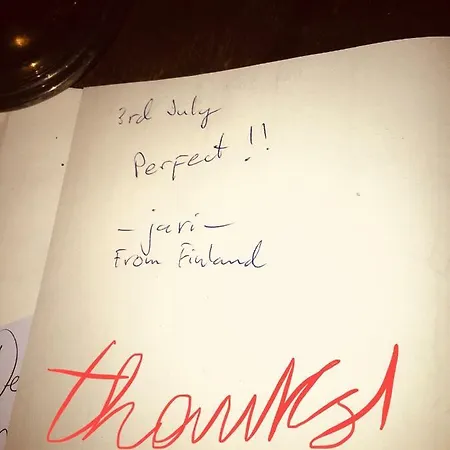 3rd July
Perfect !!
- jari -
From Finland
thanks!
De